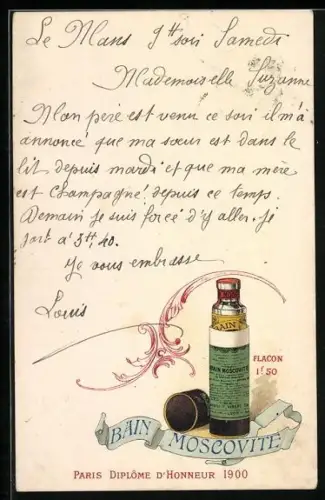 Le Mans 9h soir Samedi
Mademoiselle Suzanne
Mon père est venu ce soir il m'a
annoncé que ma sœur est dans le
lit depuis mardi et que ma mère
est Champagné depuis ce temps.
Demain je suis forcé d'y aller. Je
à 5h 40.
Je vous embrasse
Louis
BAIN
BAIN MOSCOVITE
FLACON
1F 50
BAIN MOSCOVITE
PARIS DIPLÔME D'HONNEUR 1900